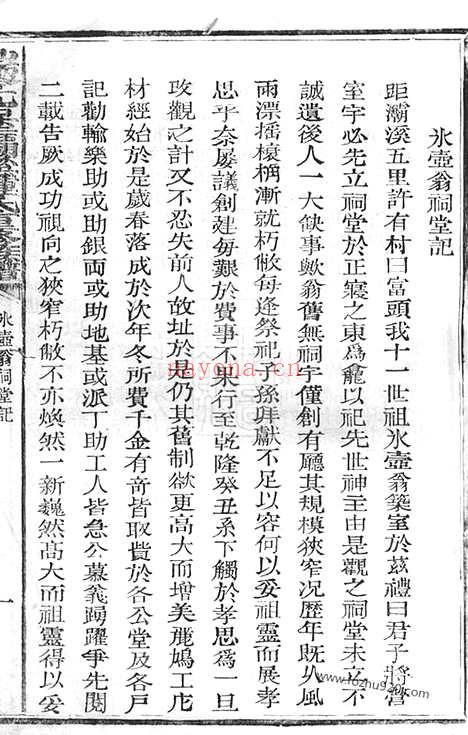 氷壺翁祠堂記
距灞溪五里許有村曰當頭我十一世祖氷壺翁築室於茲禮曰君子將營
室宇必先立祠堂於正寢之東爲龕以祀先世神主由是觀之祠堂未立不
誠遺後人一大缺事歟翁舊無祠宇僅創有廳其規模狹窄况歷年既久風
雨漂搖榱桷漸就朽敝每逢祭祀子孫拜獻不足以容何以妥祖靈而展孝
思乎奈屡議創建每艱於費事不果行至乾隆癸丑系下觸於孝思爲一旦
攻觀之計又不忍失前人故址於是仍其舊制欲更高大而增美麗鳩工庀
材經始於是歲春落成於次年冬所費千金有奇皆取貲於各公堂及各戶
記勸輸樂助或助銀両或助地基或派丁助工人皆急公慕義踴躍爭先閱
二載告厥成功視向之狹窄朽敝不亦煥然一新巍然高大而祖靈得以妥
氷壺翁祠堂記
一
nayona.cn
www.fozhu920.com